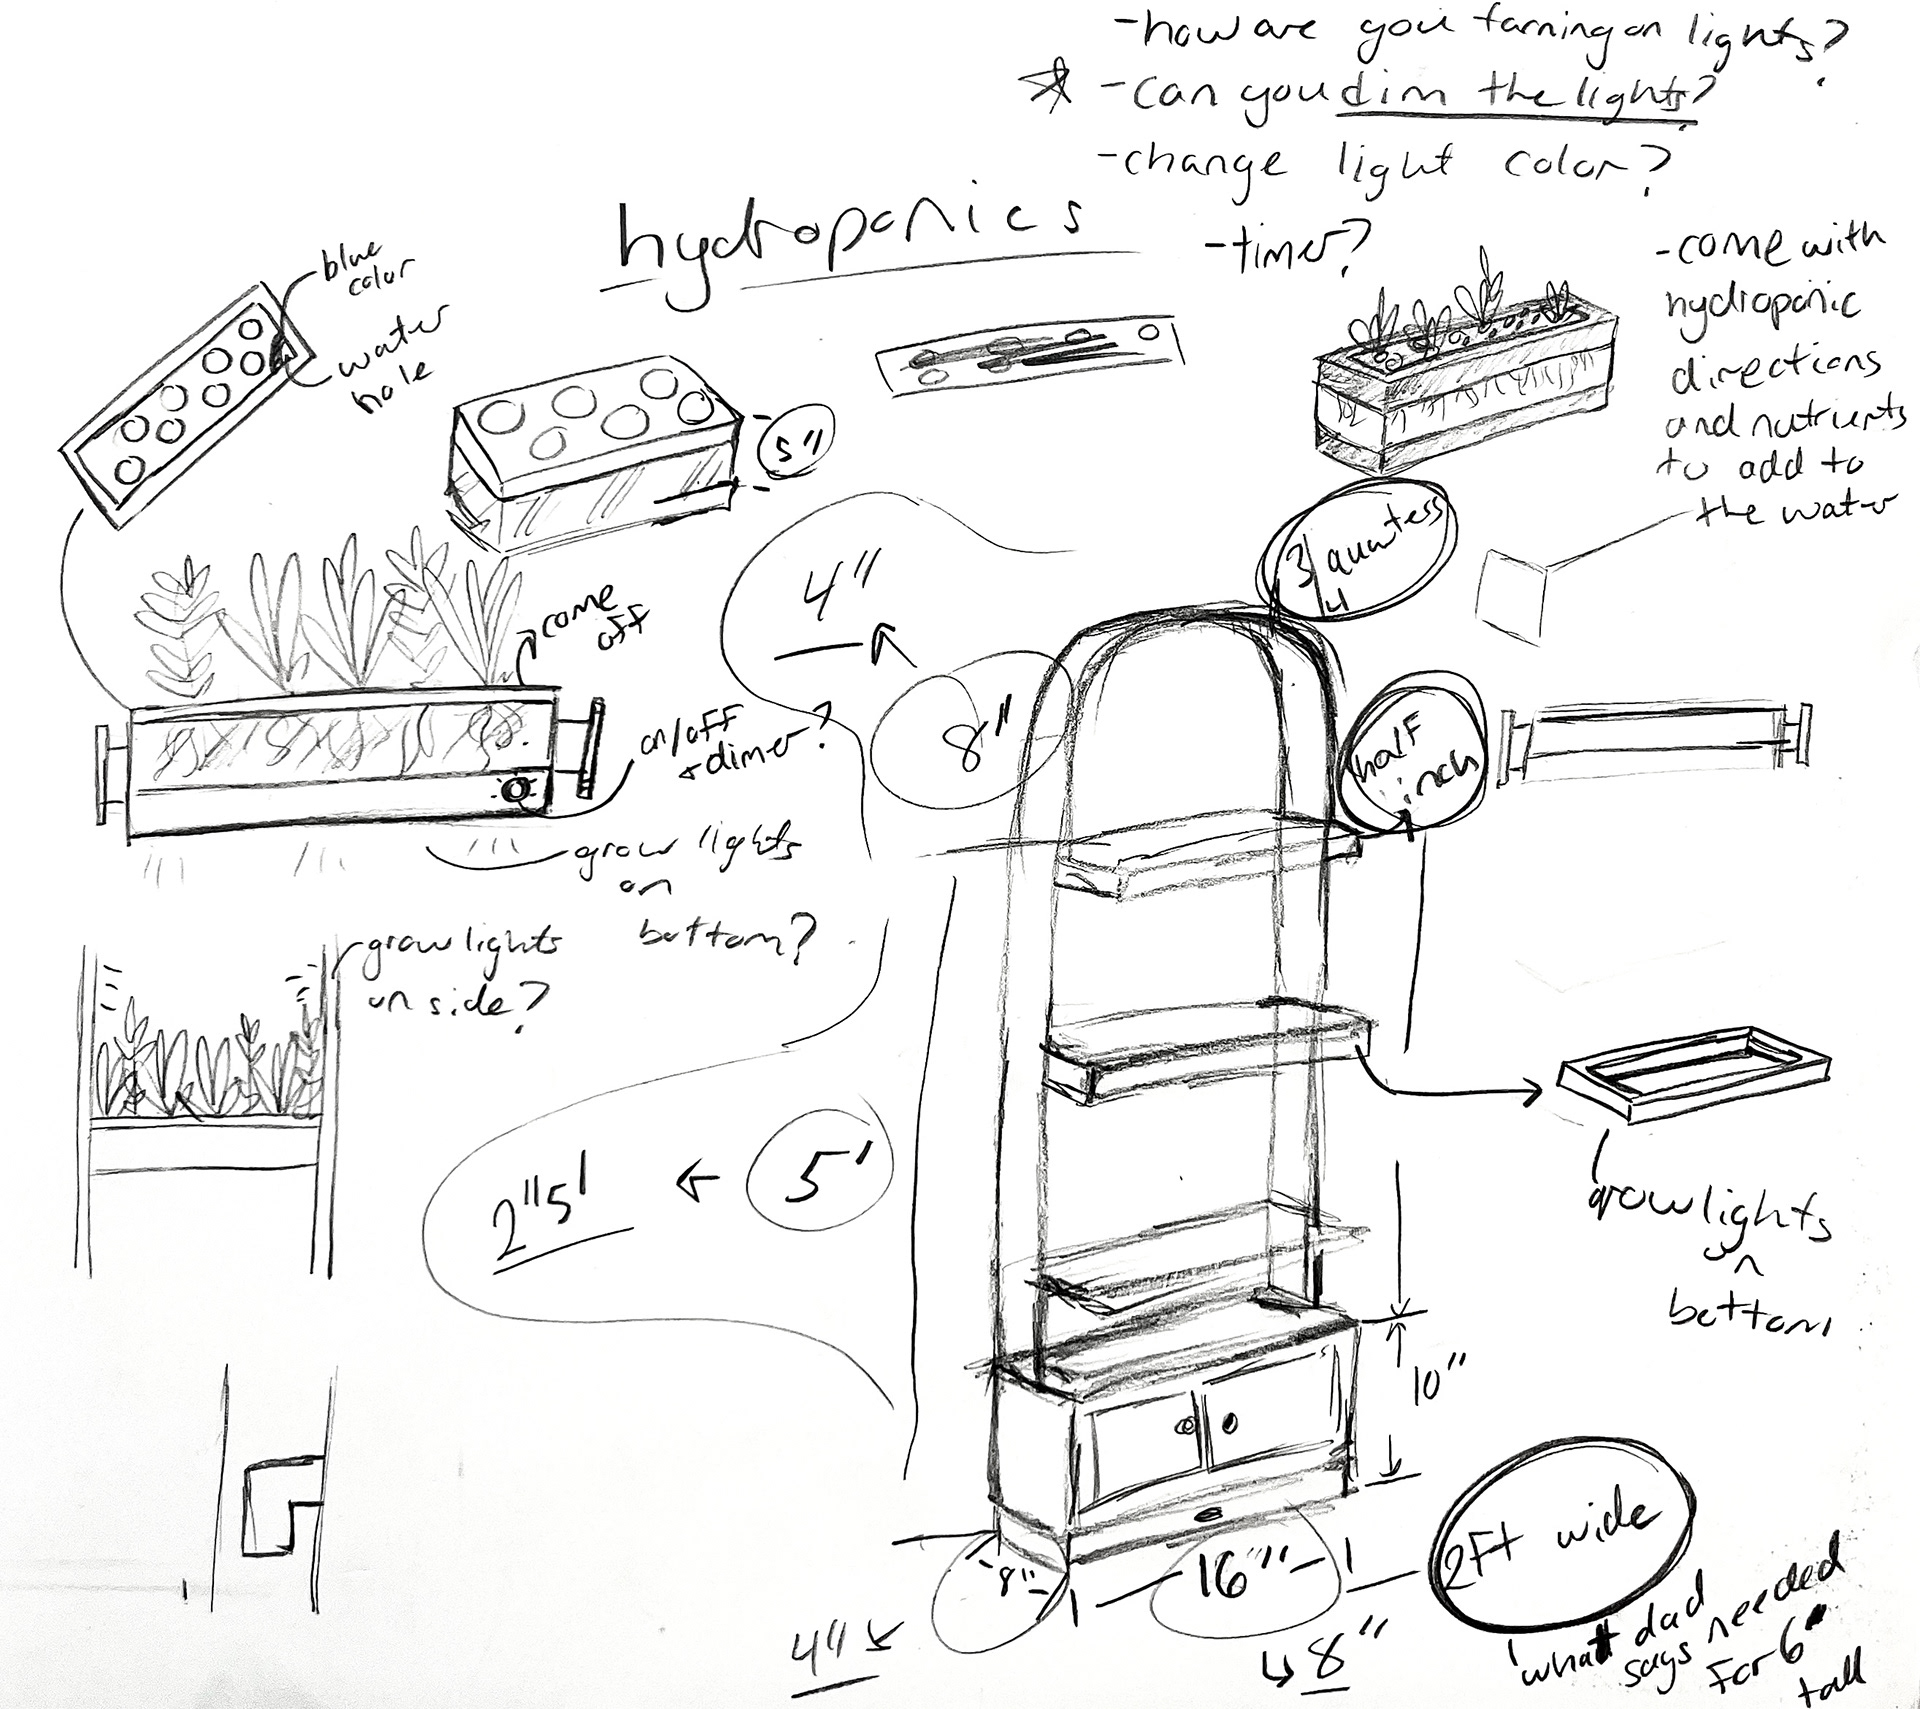 -how are you turning on lights?
-can you dim the lights?
-change light color?
-timer?
hydroponics
-come with
hydroponic
directions
and nutrients
to add to
the water
blue
color
water
hole
5"
3/4 quarters
4"
8"
come
off
on/off
+ dimer?
half
inch
grow lights
on
bottom?
grow lights
on side?
5'
2"5'
grow lights
on
bottom
10"
8"
16"
2Ft wide
4"
8"
what dad
says needed
For 6'
tall